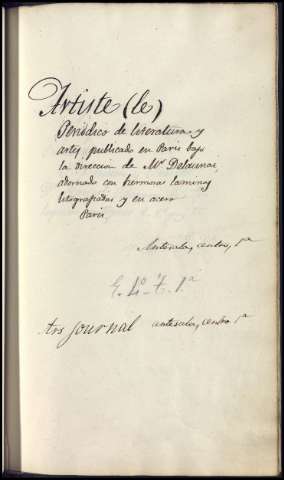 Artiste (le)
Periódico de literatura y
artes, publicado en Paris bajo
la direccion de Mr Delaunai,
adornado con hermosas laminas
litografiadas y en acero
Paris.
Antesala, centro, 1ª
E. 4º. T. 1ª
Ars journal antesala, centro 1ª